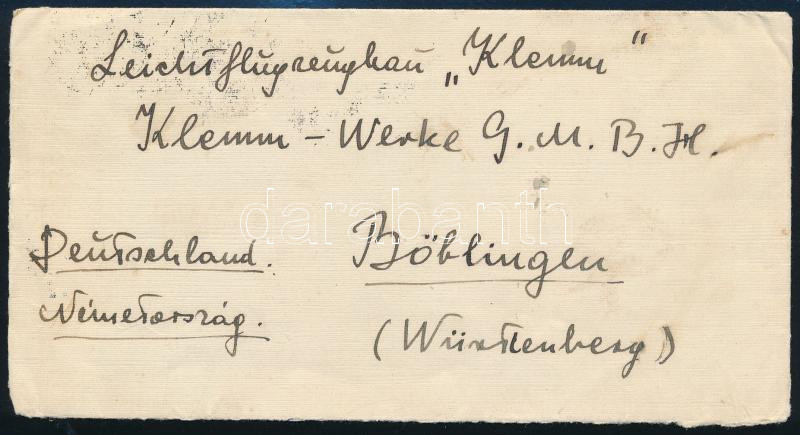 Leichtflugzeugbau „Klemm“
Klemm - Werke G. M. B. H.
darabanth
Deutschland. Böblingen
Németország.
(Württenberg)